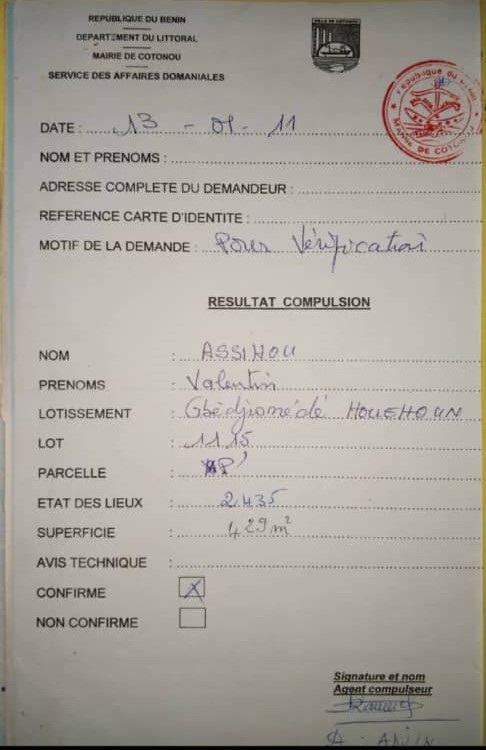 REPUBLIQUE DU BENIN
DEPARTEMENT DU LITTORAL
MAIRIE DE COTONOU
SERVICE DES AFFAIRES DOMANIALES
VILLE DE COTONOU
République du Bénin
MAIRIE DE COTONOU
DATE : 13 - 01 - 11
NOM ET PRENOMS :
ADRESSE COMPLETE DU DEMANDEUR :
REFERENCE CARTE D'IDENTITE :
MOTIF DE LA DEMANDE : Pour Vérification
RESULTAT COMPULSION
NOM : ASSIHOU
PRENOMS : Valentin
LOTISSEMENT : Gbédjromédé HOUEHOUN
LOT : 1115
PARCELLE : P'
ETAT DES LIEUX : 2435
SUPERFICIE : 429 m²
AVIS TECHNIQUE :
CONFIRME X
NON CONFIRME
Signature et nom
Agent compulseur